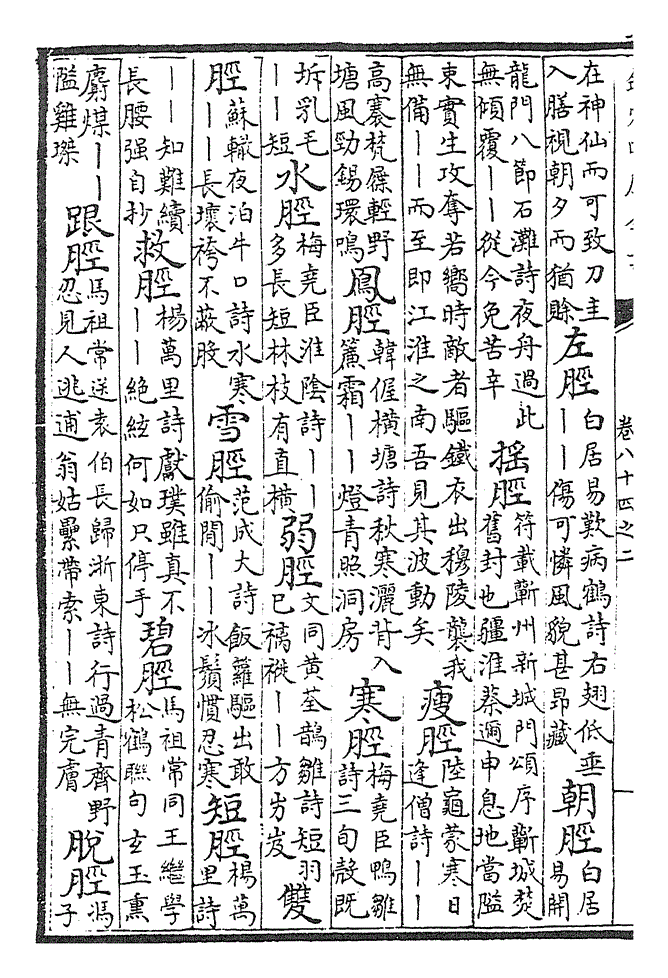 卷八十四之二
在神仙而可致刀圭入膳視朝夕而猶賒左脛白居易歎病鶴詩右翅低垂——傷可憐風貌甚昂藏朝脛白居易開
龍門八節石灘詩夜舟過此無傾覆——從今免苦辛揺脛符載蘄州新城門頌序蘄城楚舊封也疆淮蔡邇申息地當隘
束實生攻奪若嚮時敵者驅鐵衣出穆陵襲我無備——而至即江淮之南吾見其波動矣瘦脛陸龜蒙寒日逢僧詩——
高褰梵屧輕野塘風勁錫環鳴鳳脛韓偓横塘詩秋寒灑背入簾霜——燈青照洞房寒脛梅堯臣鴨雛詩三旬殻既
坼乳毛——短水脛梅堯臣淮陰詩——多長短林枝有直横弱脛文同黄荃鵲雛詩短羽已褵褷——方岌岌雙
脛蘇轍夜泊牛口詩水寒——長壞袴不蔽股雪脛范成大詩飯籮驅出敢偷閒——冰鬚慣忍寒短脛楊萬里詩
——知難續長腰强自抄救脛楊萬里詩獻璞雖真不——絶絃何如只停手碧脛馬祖常同王繼學松鶴聯句玄玉熏
麝煤——隘雞榤跟脛馬祖常送袁伯長歸浙東詩行過青齊野忍見人逃逋翁姑纍帶索——無完膚脫脛馮子